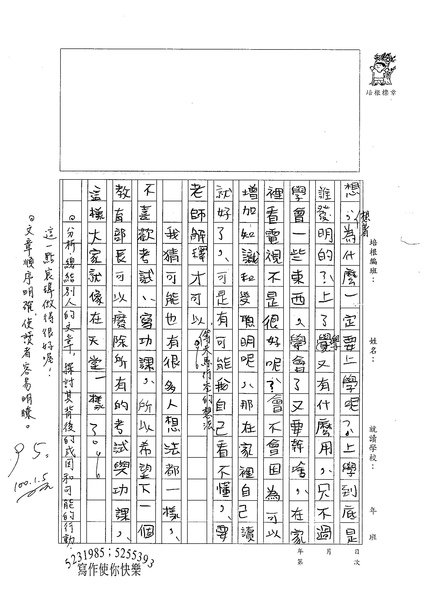 培根標章
培根編班：
姓名：
就讀學校：
年
班
年
月
日
第
次
想，為什麼一定要上學呢？上學到底是
誰發明的？上了學又有什麼用，只不過
學會一些東西，學會了又要幹啥，在家
裡看電視不是很好呢？會不會因為可以
增加知識和變聰明呢，那在家裡自己讀
就好了，可是有可能我自己看不懂，要
老師解釋才可以。
我猜可能也有很多人想法都一樣，
不喜歡考試、寫功課，所以希望下一個
教育部長可以廢除所有的考試與功課，
這樣大家就像在天堂一樣了。
分析總給別人的文章，探討其背後的成因和可能的行動，
這一點宸瑋做得很好喔！
文章順序明確，使讀者容易明瞭。
95.
100.1.5
5231985；5255393
寫作使你快樂